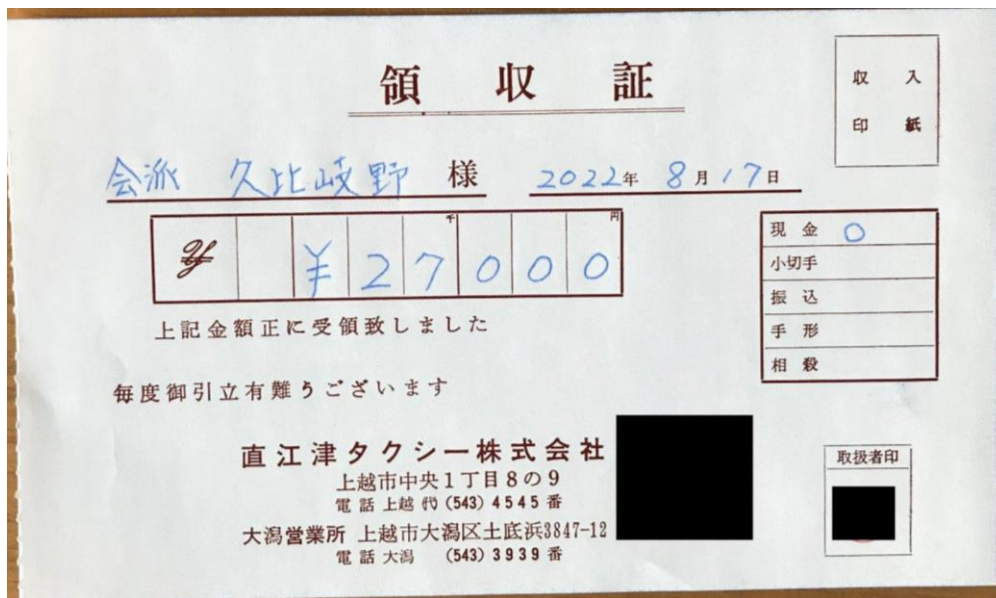 領収証
収入
印紙
会派 久比岐野 様 2022年 8月17日
千 円
¥27000
上記金額正に受領致しました
現金 0
小切手
振込
手形
相殺
毎度御引立有難うございます
直江津タクシー株式会社
上越市中央1丁目8の9
電話 上越 代 (543) 4545 番
大潟営業所 上越市大潟区土底浜3847-12
電話 大潟 (543) 3939 番
取扱者印